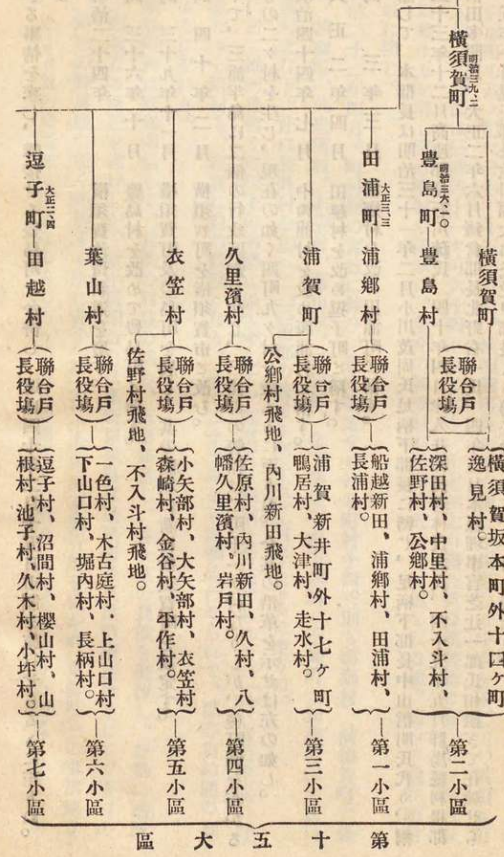 横須賀町 明治三九、二
横須賀町
横須賀坂本町外十四ヶ町
逸見村。
豊島町 明治三六、一〇
豊島村
(聯合戸長役塲)
深田村、中里村、不入斗村、
佐野村、公鄕村。
第二小區
田浦町 大正三、三
浦鄕村
(聯合戸長役塲)
船越新田、浦鄕村、田浦村、
長浦村。
第一小區
浦賀町
(聯合戸長役塲)
浦賀新井町外十七ヶ町
鴨居村、大津村、走水村。
第三小區
公鄕村飛地、內川新田飛地。
久里濱村
(聯合戸長役塲)
佐原村、內川新田、久村、八
幡久里濱村、岩戸村。
第四小區
衣笠村
(聯合戸長役塲)
小矢部村、大矢部村、衣笠村
森崎村、金谷村、平作村。
第五小區
佐野村飛地、不入斗村飛地。
葉山村
(聯合戸長役塲)
一色村、木古庭村、上山口村
下山口村、堀內村、長柄村。
第六小區
逗子町 大正二、四
田越村
(聯合戸長役塲)
逗子村、沼間村、櫻山村、山
根村、池子村、久木村、小坪村。
第七小區
第十五大區